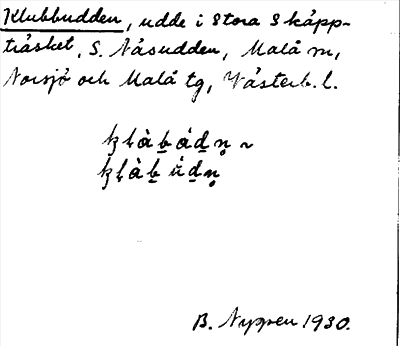 Klubbudden, udde i Stora Skäpp-
träsket, S. Näsudden, Malå sn,
Norsjö och Malå tg, Västerb. l.
B. Nyppen 1930.